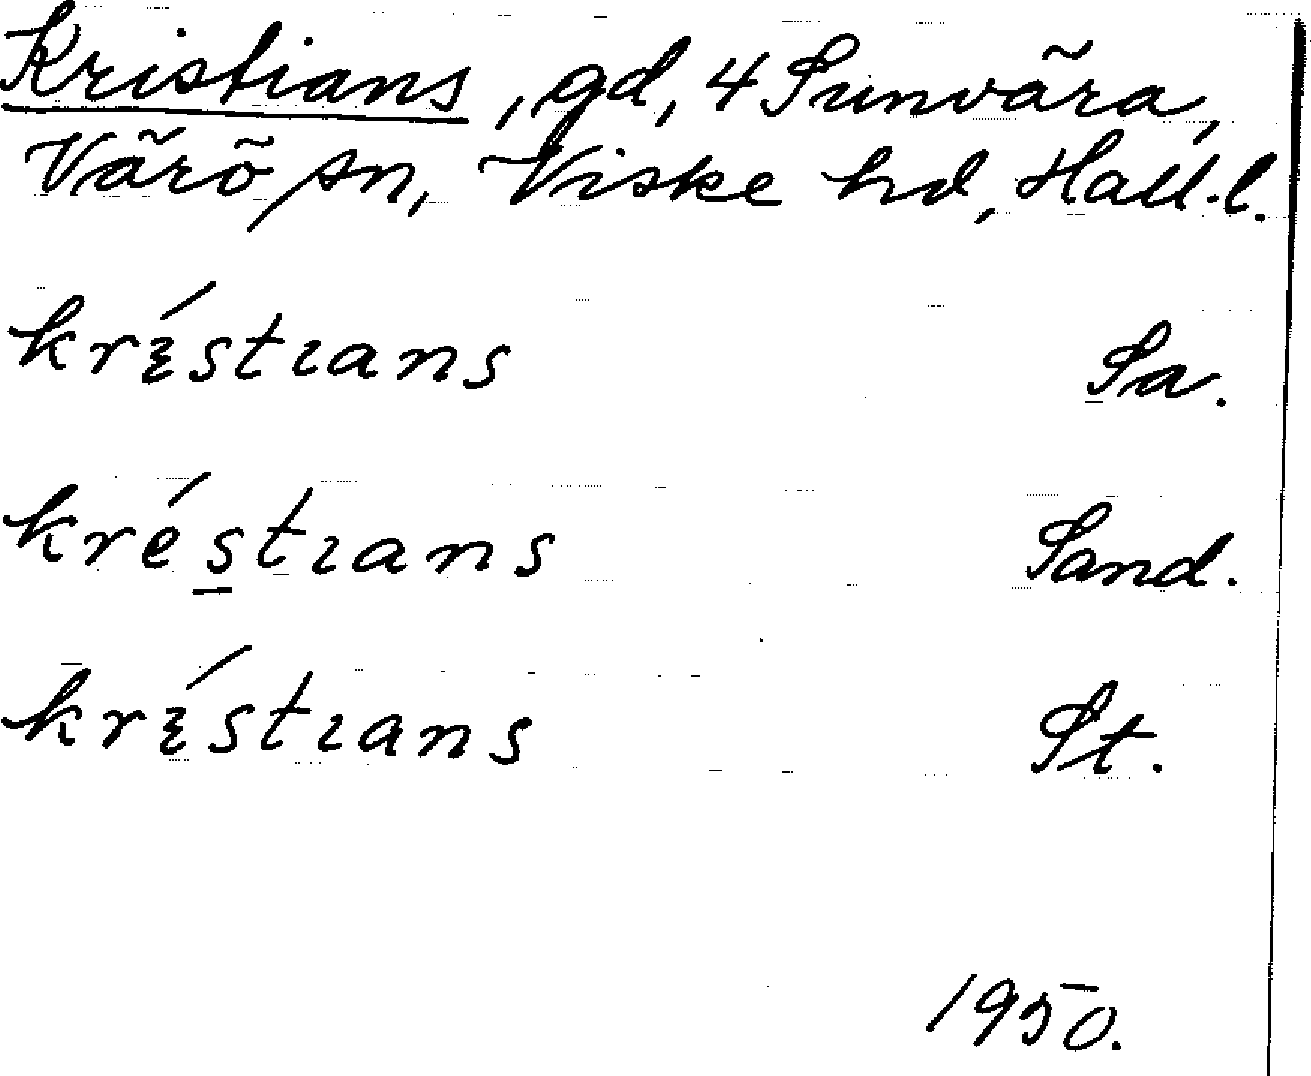 Kristians, gd, 4 Sunvära,
Värö sn, Viske hd, Hall.l.
krɛ́stɩans Sa.
krés̱tɩans Sand.
krɛ́stɩans St.
1950.